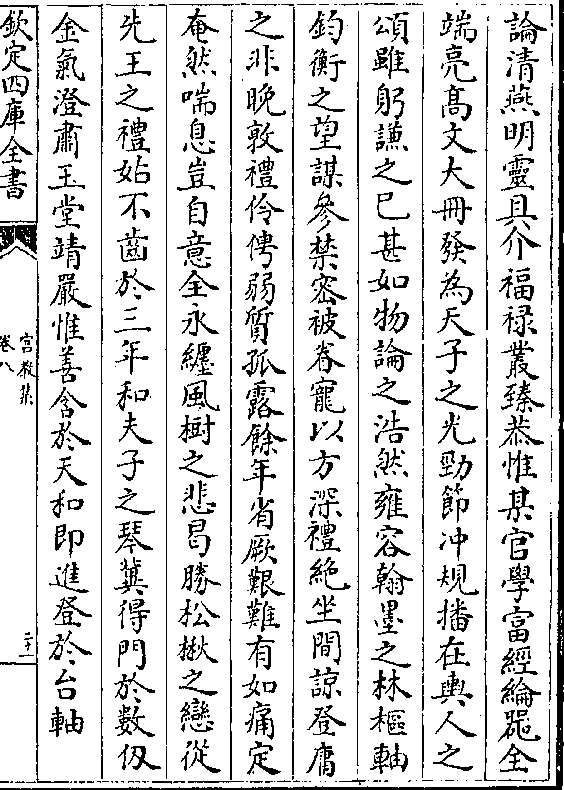 論清燕明靈具介福祿叢臻恭惟某官學富經綸噐全
端亮髙文大冊發為天子之光勁節冲規播在輿人之
頌雖躬謙之已甚如物論之浩然雍容翰墨之林樞軸
鈞衡之望謀參禁宻被眷寵以方深禮絶坐間諒登庸
之非晚敦禮伶俜弱質孤露餘年省厥艱難有如痛定
奄然喘息豈自意全永纒風樹之悲曷勝松楸之戀從
先王之禮始不齒於三年和夫子之琴冀得門於數仭
金氣澄肅玉堂靖嚴惟善含於天和即進登於台軸
欽定四庫全書
宫教集
卷八
二十一